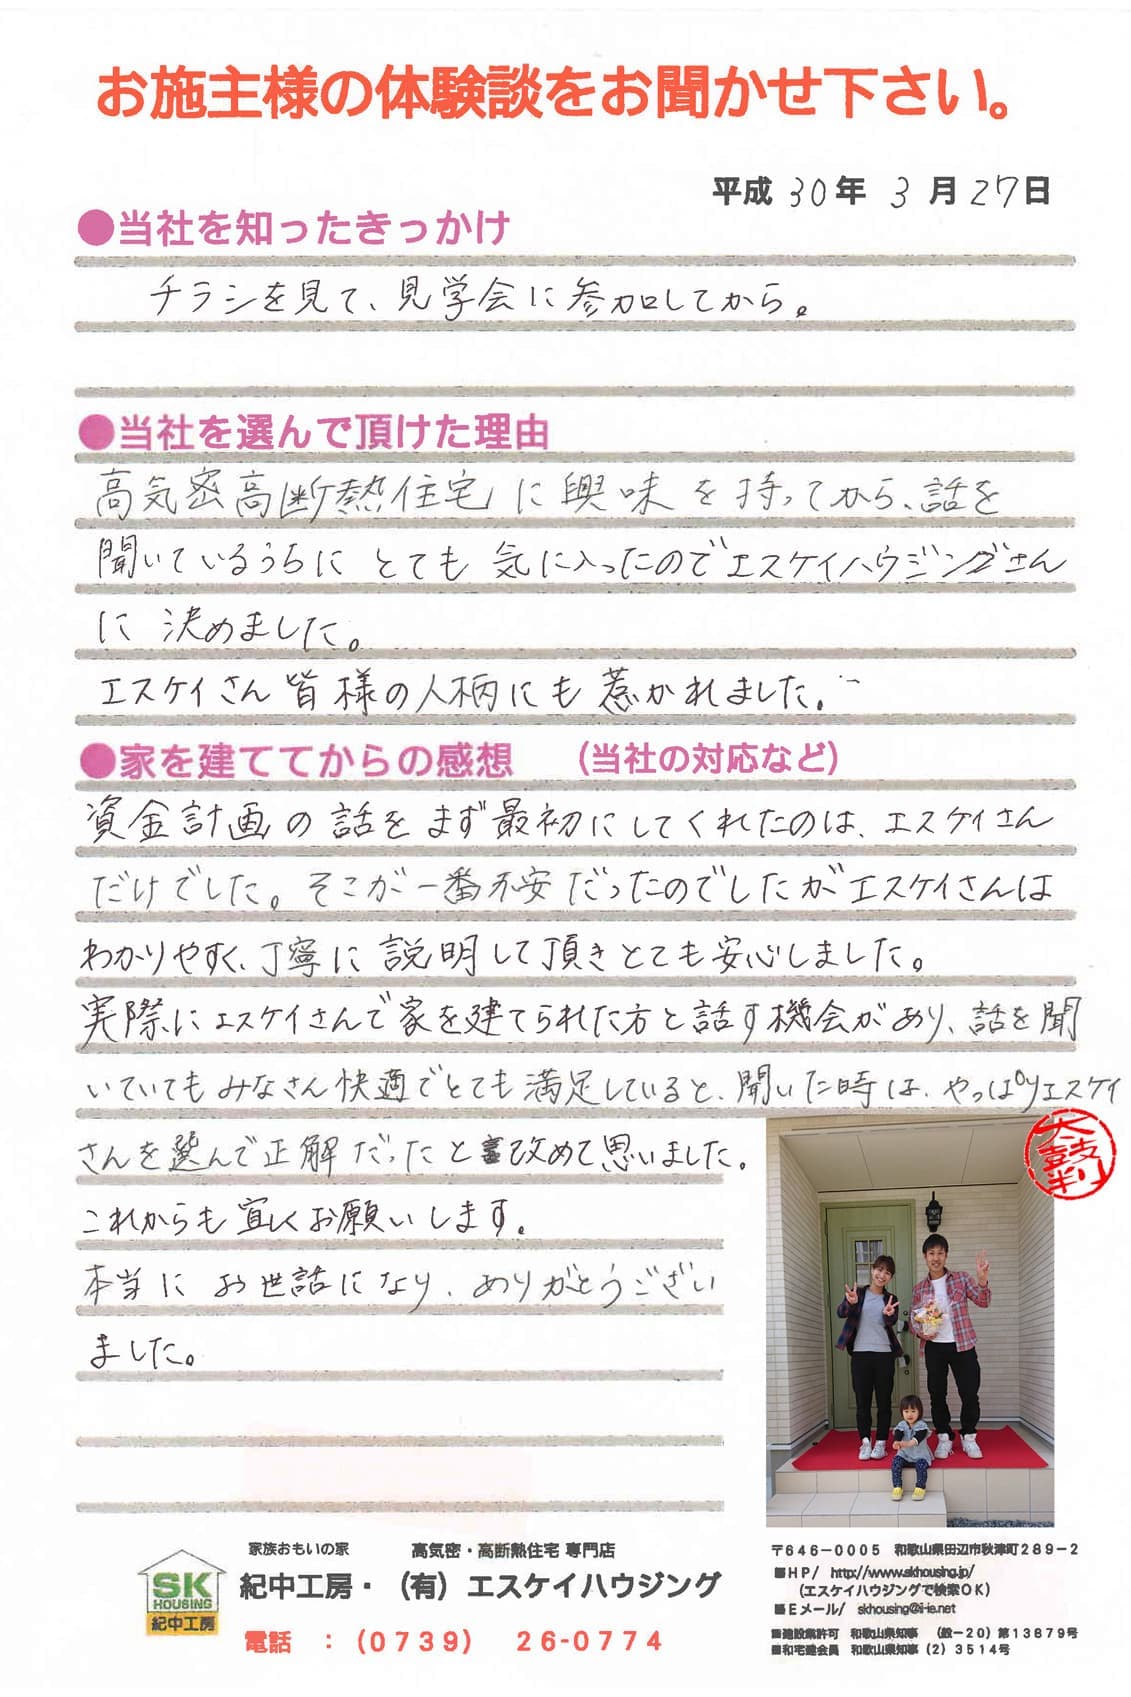 お施主様の体験談をお聞かせ下さい。
平成 30年 3月 27日
●当社を知ったきっかけ
チラシを見て、見学会に参加してから。
●当社を選んで頂けた理由
高気密高断熱住宅に興味を持ってから、話を
聞いているうちにとても気に入ったのでエスケイハウジングさん
に決めました。
エスケイさん皆様の人柄にも惹かれました。
●家を建ててからの感想 (当社の対応など)
資金計画の話をまず最初にしてくれたのは、エスケイさん
だけでした。そこが一番不安だったのでしたがエスケイさんは
わかりやすく、丁寧に説明して頂きとても安心しました。
実際にエスケイさんで家を建てられた方と話す機会があり、話を聞
いていてもみなさん快適でとても満足していると、聞いた時は、やっぱりエスケイ
さんを選んで正解だったと改めて思いました。
太鼓判
これからも宜しくお願いします。
本当にお世話になり、ありがとうござい
ました。
SK
HOUSING
紀中工房
家族おもいの家 高気密・高断熱住宅 専門店
紀中工房・(有)エスケイハウジング
電話 :(0739) 26-0774
〒646-0005 和歌山県田辺市秋津町289-2
■HP/ http://www.skhousing.jp/
(エスケイハウジングで検索OK)
■Eメール/ skhousing@i-ie.net
■建設業許可 和歌山県知事 (般-20)第13879号
■和宅建会員 和歌山県知事(2)3514号